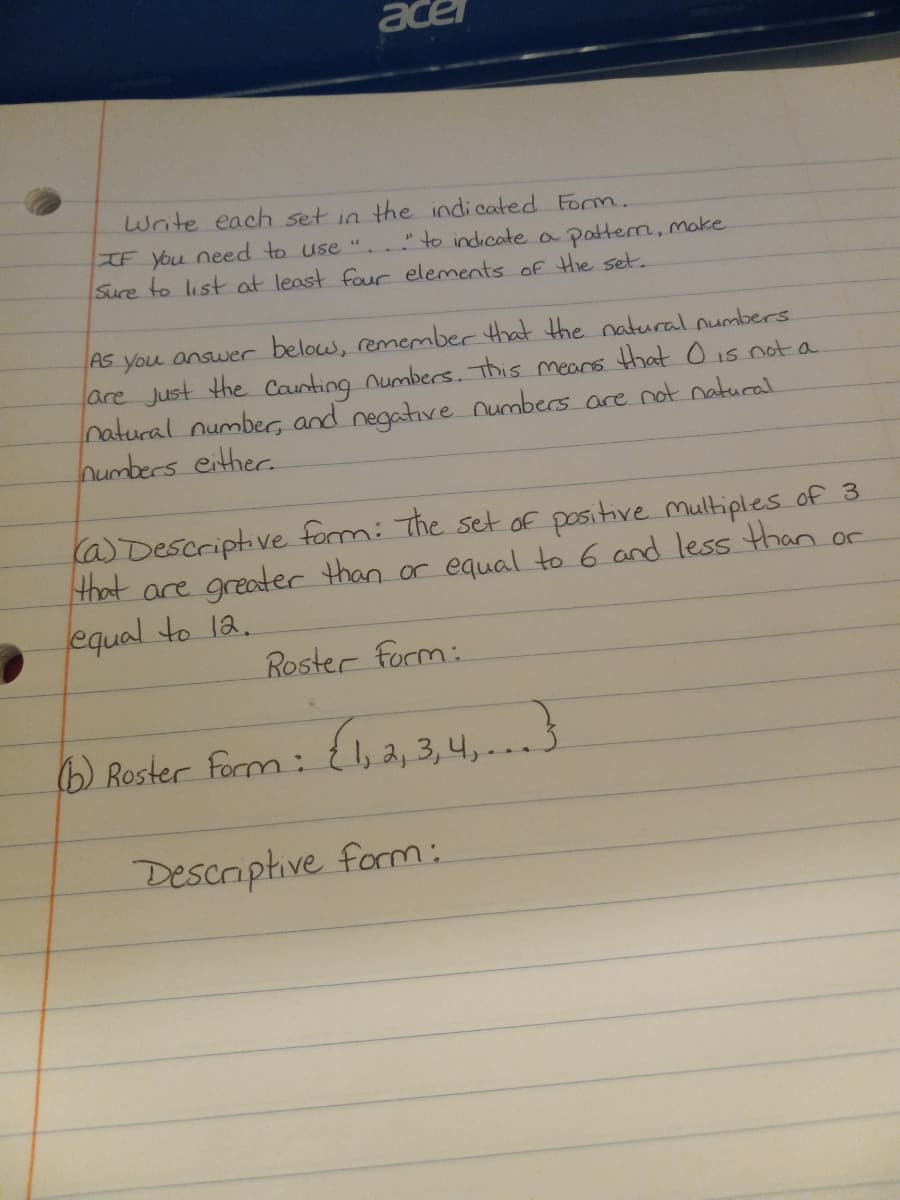 acer
Write each set in the indicated Form.
IF You need to use "..." to indicate a pattern, make
Sure to list at least four elements of the set.
AS you answer below, remember that the natural numbers
are Just the Counting numbers. This means that 0 is not a
natural number, and negative numbers are not natural
numbers either.
(a) Descriptive form: The set of positive multiples of 3
that are greater than or equal to 6 and less than or
equal to 12.
Roster form:
(b) Roster form: {1, 2, 3, 4, ...}
Descriptive form: